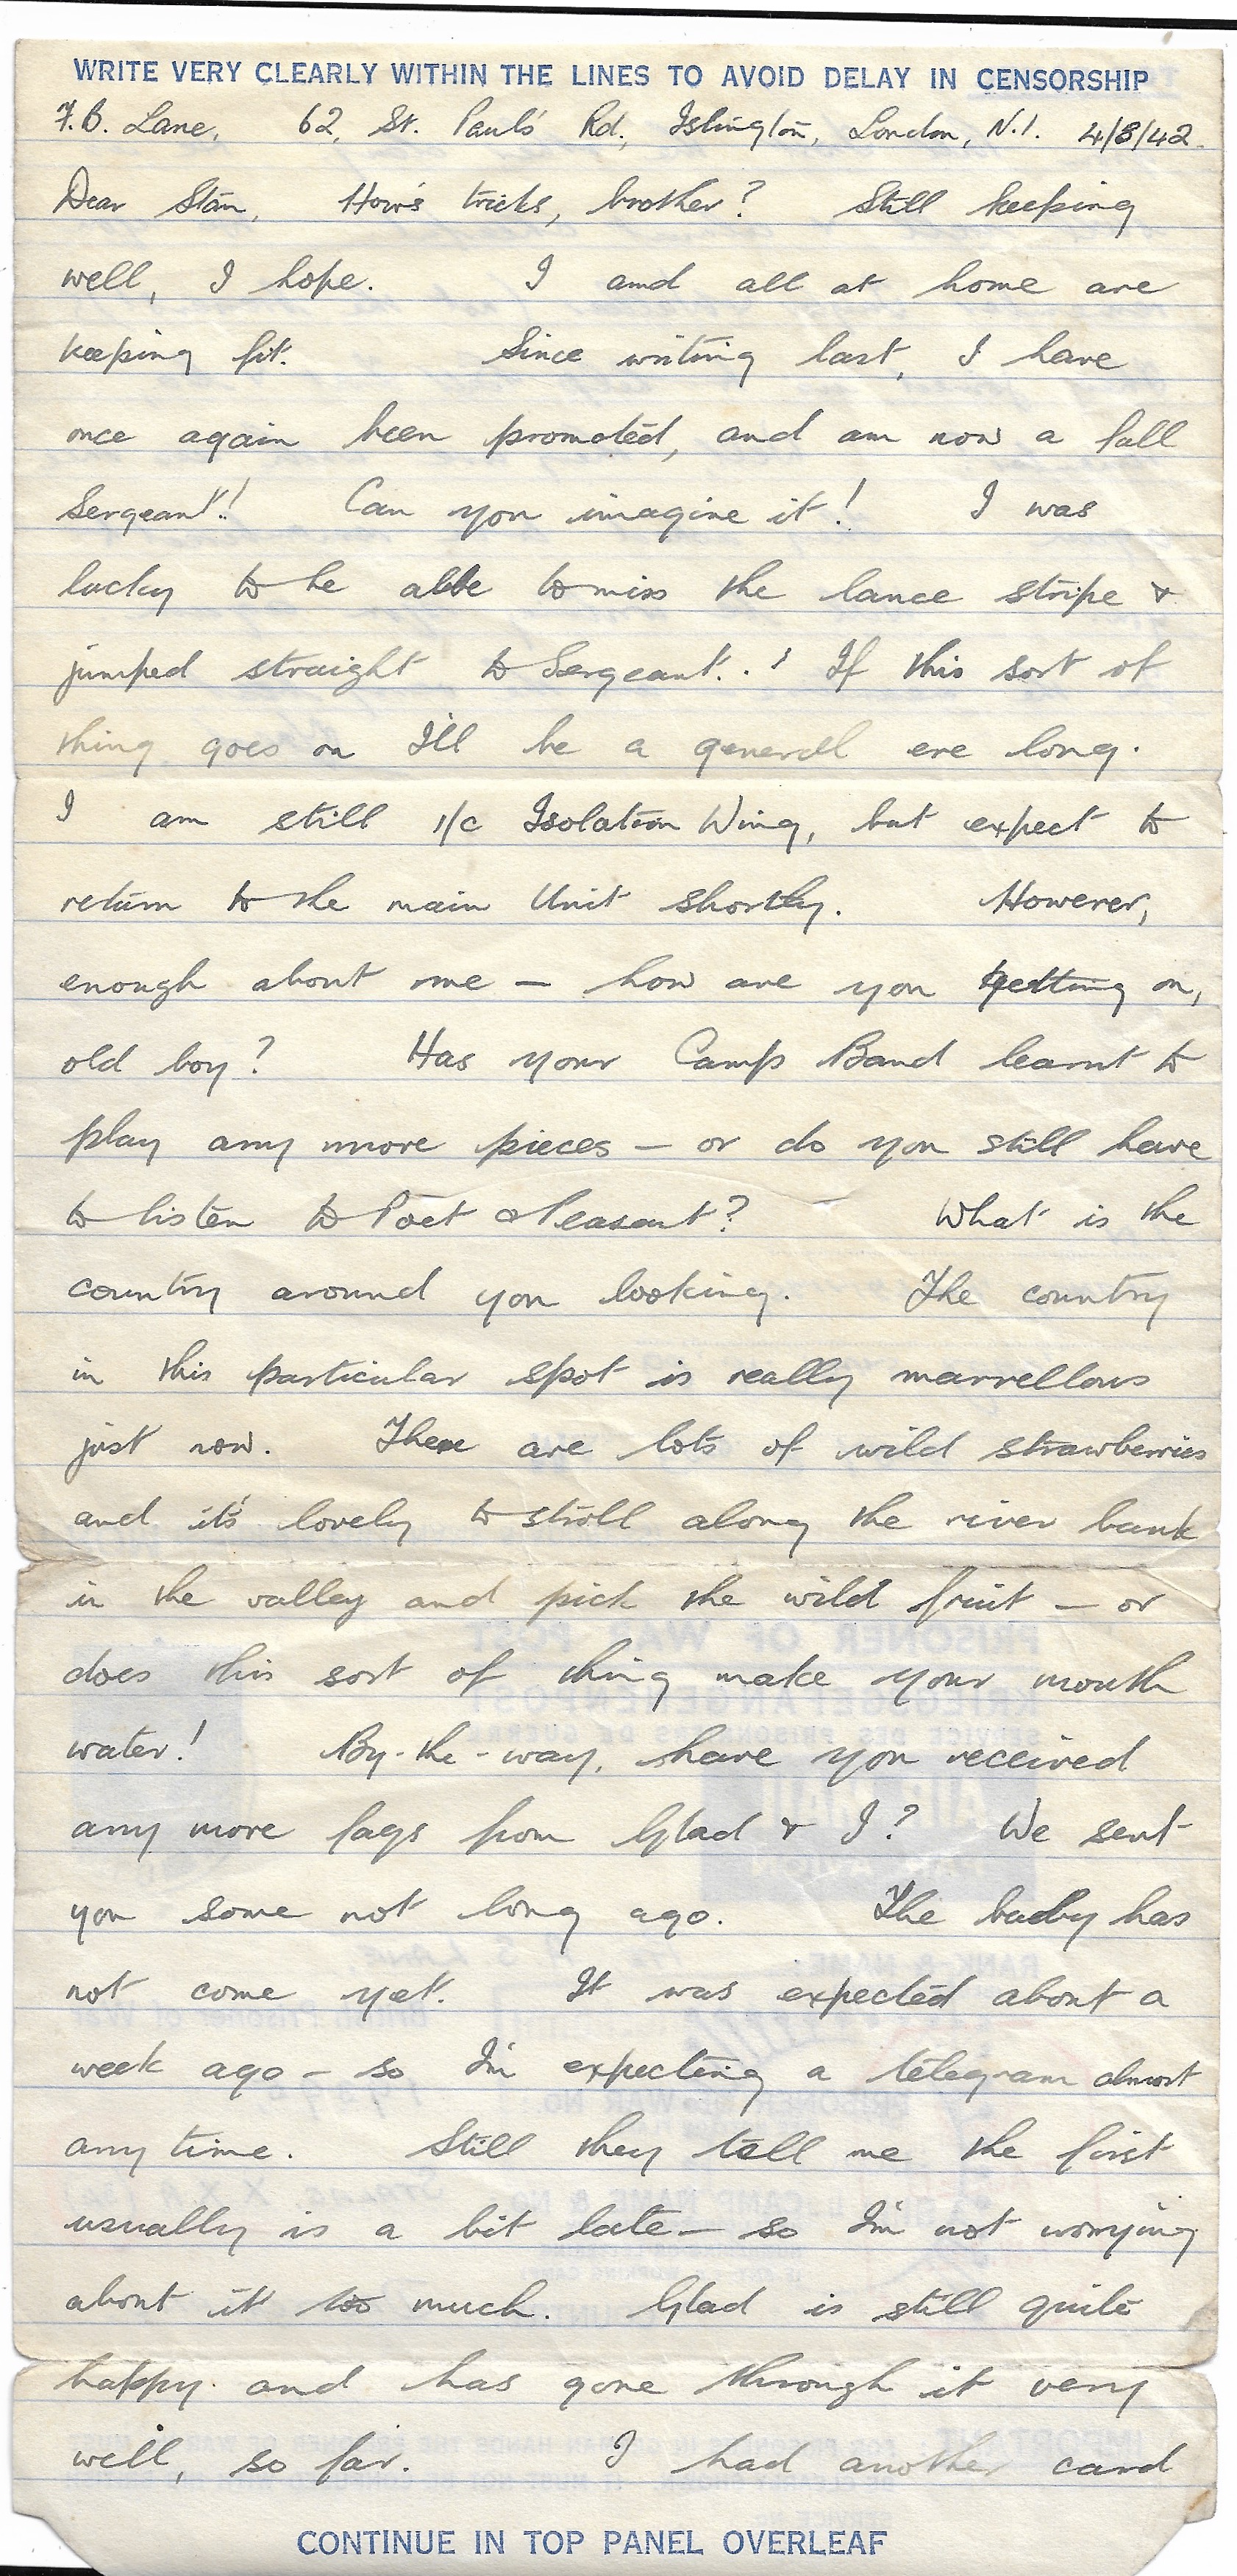 WRITE VERY CLEARLY WITHIN THE LINES TO AVOID DELAY IN CENSORSHIP
F.B. Lane, 62, St. Paul's Rd, Islington, London, N.1. 4/8/42.
Dear Stan, How's tricks, brother? Still keeping
well, I hope. I and all at home are
keeping fit. Since writing last, I have
once again been promoted, and am now a full
Sergeant!! Can you imagine it! I was
lucky to be able to miss the lance stripe &
jumped straight to Sergeant..! If this sort of
thing goes on I'll be a general ere long.
I am still i/c Isolation Wing, but expect to
return to the main Unit shortly. However,
enough about me — how are you getting on,
old boy? Has your Camp Band learnt to
play any more pieces — or do you still have
to listen to Poet & Peasant? What is the
country around you looking. The country
in this particular spot is really marvellous
just now. There are lots of wild strawberries
and it's lovely to stroll along the river bank
in the valley and pick the wild fruit — or
does this sort of thing make your mouth
water! By-the-way, have you received
any more fags from Glad & I? We sent
you some not long ago. The baby has
not come yet. It was expected about a
week ago — so I'm expecting a telegram almost
any time. Still they tell me the first
usually is a bit late — so I'm not worrying
about it too much. Glad is still quite
happy and has gone through it very
well, so far. I had another card
CONTINUE IN TOP PANEL OVERLEAF